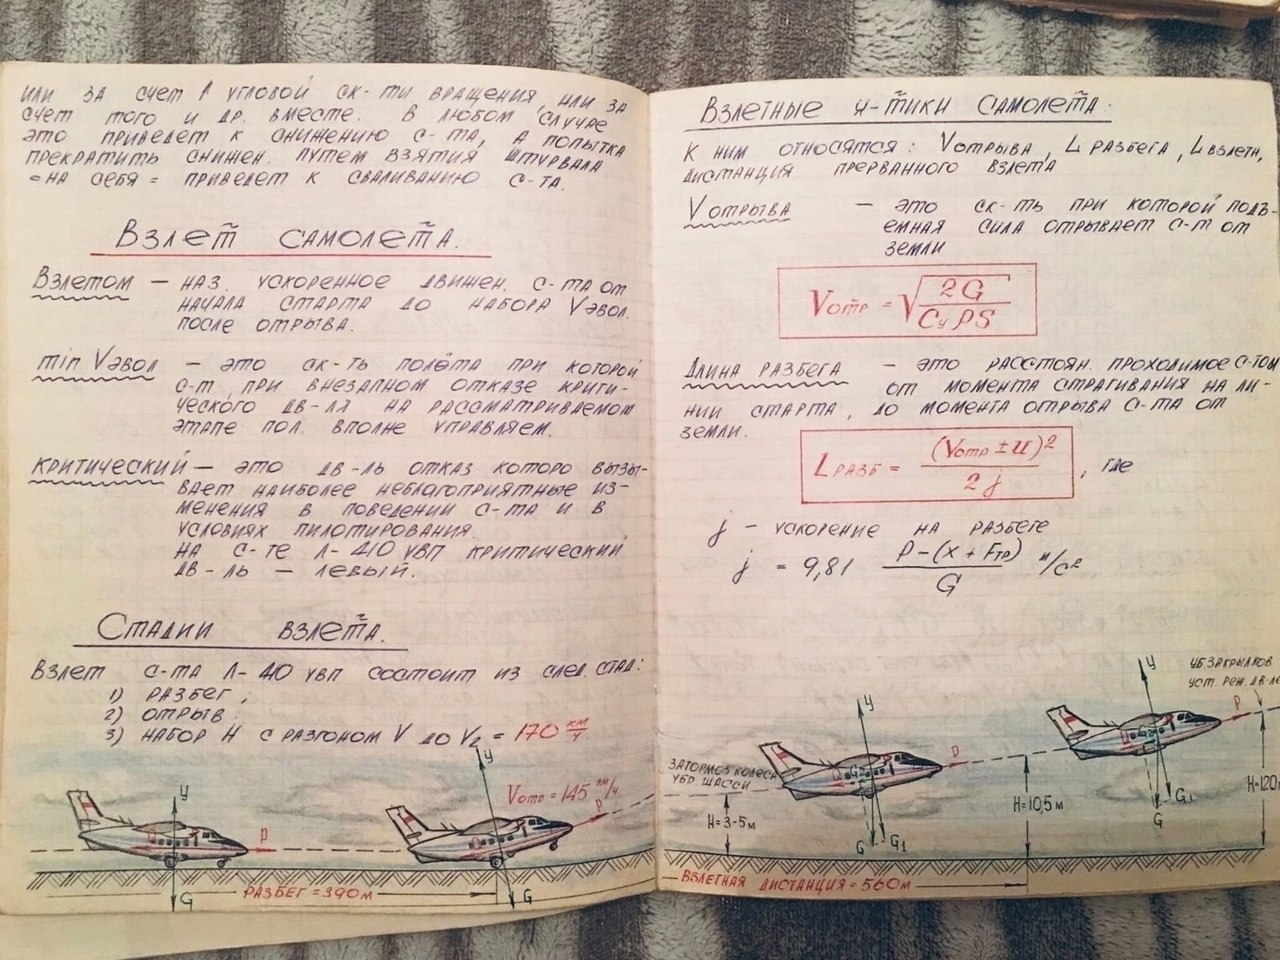 или за счет ↑ угловой ск-ти вращения, или за
счет того и др. вместе. В любом случае
это приведет к снижению с-та, а попытка
прекратить снижен. путем взятия штурвала
=на себя= приведет к сваливанию с-та.
Взлет самолета.
Взлетом — наз. ускоренное движен. с-та от
начала старта до набора Vэвол.
после отрыва.
min Vэвол — это ск-ть полёта при которой
с-т при внезапном отказе крити-
ческого дв-ля на рассматриваемом
этапе пол. вполне управляем.
критический — это дв-ль отказ которо вызы-
вает наиболее неблагоприятные из-
менения в поведении с-та и в
условиях пилотирования.
На с-те Л-410 увп критический
дв-ль — левый.
Стадии взлета.
Взлет с-та Л-410 увп состоит из след. стад:
1) разбег;
2) отрыв
3) набор H с разгоном V до V₂ = 170 км/ч
Vотр = 145 км/ч
У
У
P
P
G
G
разбег = 390м
Взлетные х-тики самолета:
К ним относятся: Vотрыва, L разбега, L взлетн,
дистанция прерванного взлета
V отрыва — это ск-ть при которой подъ-
емная сила отрывает с-т от
земли
Vотр = √2G/CуρS
Длина разбега — это расстоян. проходимое с-том
от момента страгивания на ли-
нии старта, до момента отрыва с-та от
земли.
L разб = (Vотр ± U)²/2j, где
j — ускорение на разбеге
j = 9,81 P-(x + Fтр)/G м/с²
уб. закрылков
уст. реж. дв-ле
У
У
P
P
затормоз колеса
убр. шасси
H=3-5м
H=10,5м
H=120
G
G₁
G
G₁
взлетная дистанция = 560м